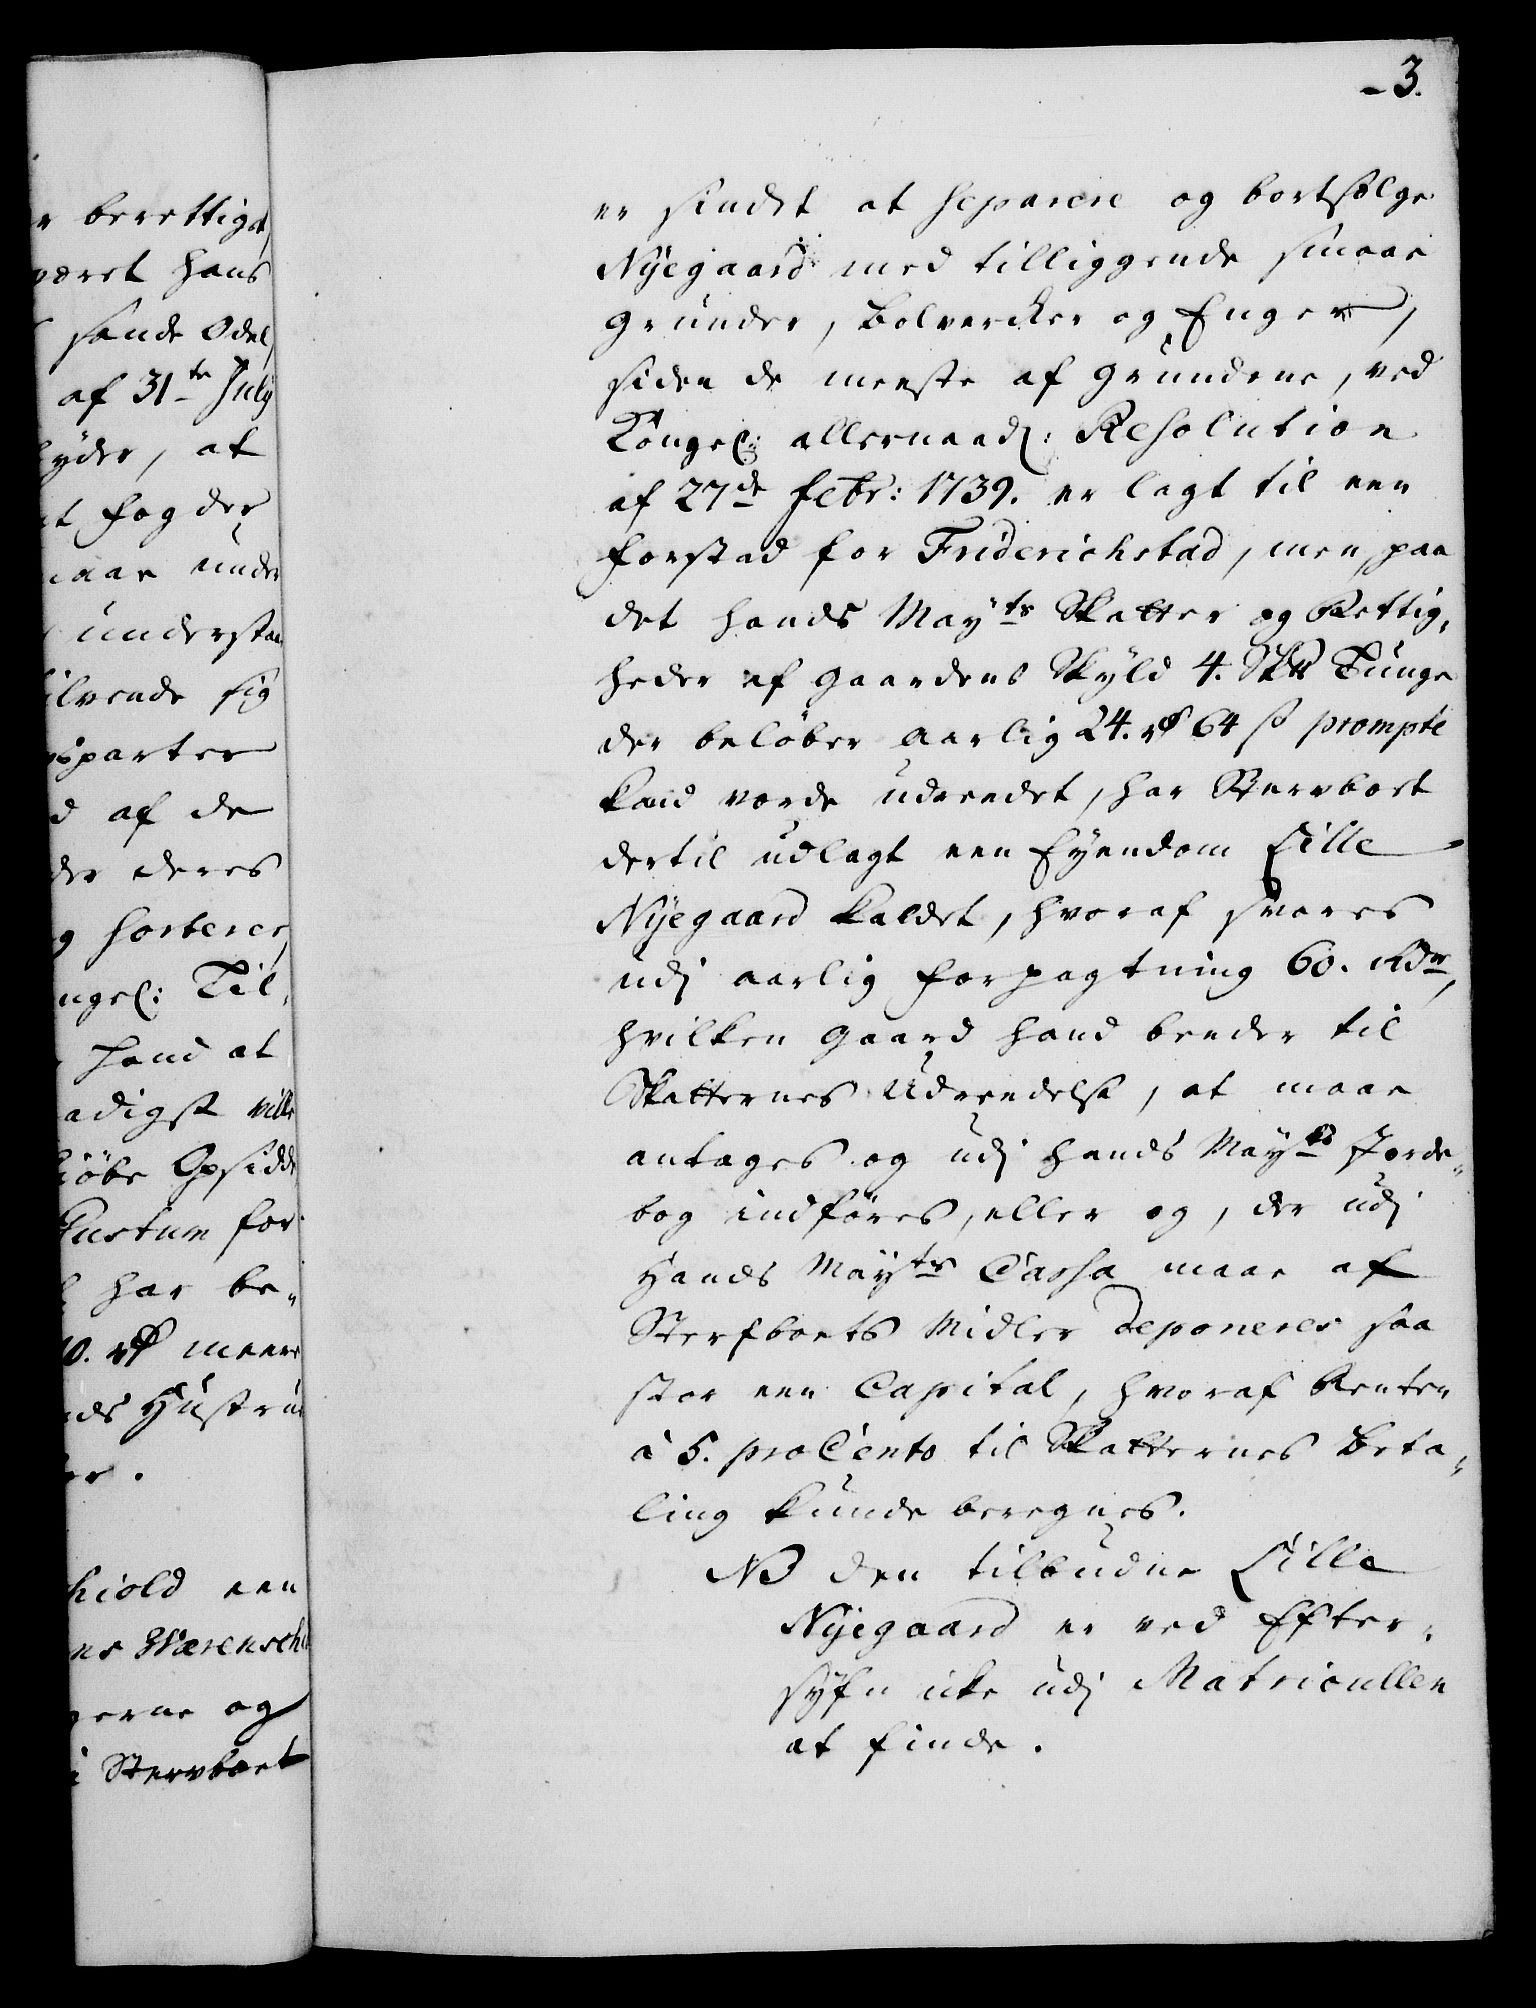 3.
r berettiget,
været hans
sande Odel,
af 31te July
lyder, at
t fogder
maae under
understaa
ilvende sig
sparter
d af de
der deres
g sorterer,
ngel: Til,
hand at
adigst ville
kiöbe Opsidd
Qustum for
har be,,
0. rd meere
nds Hustrue
er.
hiold een
ns Wærensch
gerne og
i Stervboet
er sindet at separere og bortsælge
Nÿegaard med tilliggende smaae
grunder, Bolvercker og Enger,
siden de meeste af grundene, ved
Kongel: allernaad: Resolution
af 27de Febr: 1739. er lagt til een
forstad for Friderichstad, men paa
det hands Mayts Skatter og Rettig,
heder af gaardens Skyld 4. Skll Tunge
der beløber aarlig 24. rd 64 s prompte
kand vorde udreedet, har Stervboet
dertil udlagt een Eyendom Lille
Nÿegaard kaldet, hvoraf svares
udj aarlig forpagtning 60. Rdr,
hvilken gaard hand beeder til
Skatternes Udreedelse, at maae
antages og udj hands Mayts Jorde,,
bog indføres, eller og, der udj
Hands Mayts Cassa maae af
Sterfboets Midler deponeres saa
stor een Capital, hvoraf Renten
à 5. pro Cento til Skatternes Beta,,
ling kunde beregnes.
NB den tilbudne Lille
Nÿegaard er ved Efter,
sÿfn icke udj Matricullen
at finde.